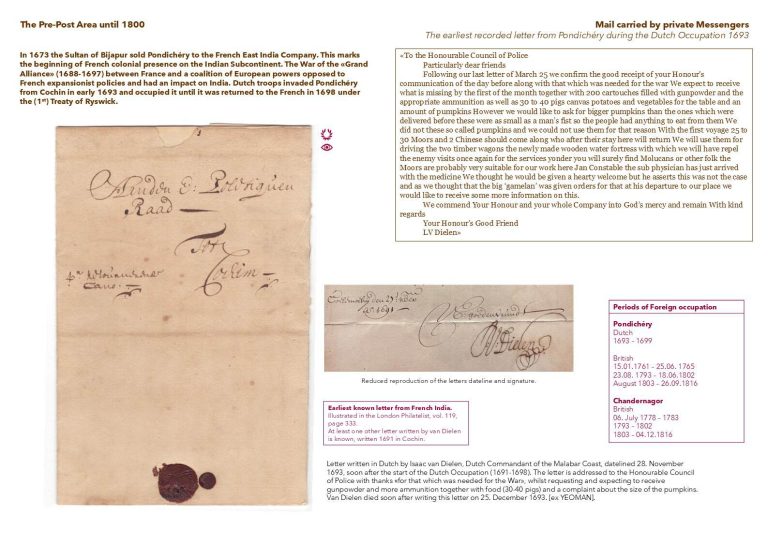 The Pre-Post Area until 1800
Mail carried by private Messengers
The earliest recorded letter from Pondichéry during the Dutch Occupation 1693
In 1673 the Sultan of Bijapur sold Pondichéry to the French East India Company. This marks
the beginning of French colonial presence on the Indian Subcontinent. The War of the «Grand
Alliance» (1688-1697) between France and a coalition of European powers opposed to
French expansionist policies and had an impact on India. Dutch troops invaded Pondichéry
from Cochin in early 1693 and occupied it until it was returned to the French in 1698 under
the (1st) Treaty of Ryswick.
«To the Honourable Council of Police
Particularly dear friends
Following our last letter of March 25 we confirm the good receipt of your Honour's
communication of the day before along with that which was needed for the war We expect to receive
what is missing by the first of the month together with 200 cartouches filled with gunpowder and the
appropriate ammunition as well as 30 to 40 pigs canvas potatoes and vegetables for the table and an
amount of pumpkins However we would like to ask for bigger pumpkins than the ones which were
delivered before these were as small as a man's fist so the people had anything to eat from them We
did not these so called pumpkins and we could not use them for that reason With the first voyage 25 to
30 Moors and 2 Chinese should come along who after their stay here will return We will use them for
driving the two timber wagons the newly made wooden water fortress with which we will have repel
the enemy visits once again for the services yonder you will surely find Molucans or other folk the
Moors are probably very suitable for our work here Jan Constable the sub physician has just arrived
with the medicine We thought he would be given a hearty welcome but he asserts this was not the case
and as we thought that the big 'gamelan' was given orders for that at his departure to our place we
would like to receive some more information on this.
We commend Your Honour and your whole Company into God's mercy and remain With kind
regards
Your Honour's Good Friend
LV Dielen»
Raad
Tot
Cochim
goede vriend
V Dielen
Reduced reproduction of the letters dateline and signature.
Earliest known letter from French India.
Illustrated in the London Philatelist, vol. 119,
page 333.
At least one other letter written by van Dielen
is known, written 1691 in Cochin.
Periods of Foreign occupation
Pondichéry
Dutch
1693 - 1699
British
15.01.1761 - 25.06. 1765
23.08. 1793 - 18.06.1802
August 1803 - 26.09.1816
Chandernagor
British
06. July 1778 - 1783
1793 - 1802
1803 - 04.12.1816
Letter written in Dutch by Isaac van Dielen, Dutch Commandant of the Malabar Coast, datelined 28. November
1693, soon after the start of the Dutch Occupation (1691-1698). The letter is addressed to the Honourable Council
of Police with thanks «for that which was needed for the War», whilst requesting and expecting to receive
gunpowder and more ammunition together with food (30-40 pigs) and a complaint about the size of the pumpkins.
Van Dielen died soon after writing this letter on 25. December 1693. [ex YEOMAN].